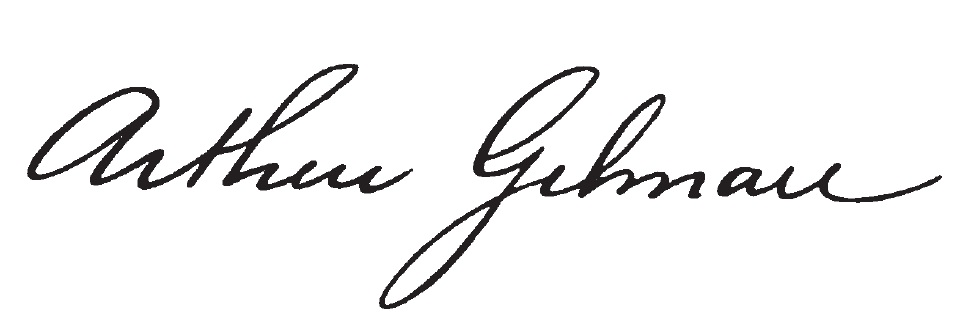 Arthur Gilman